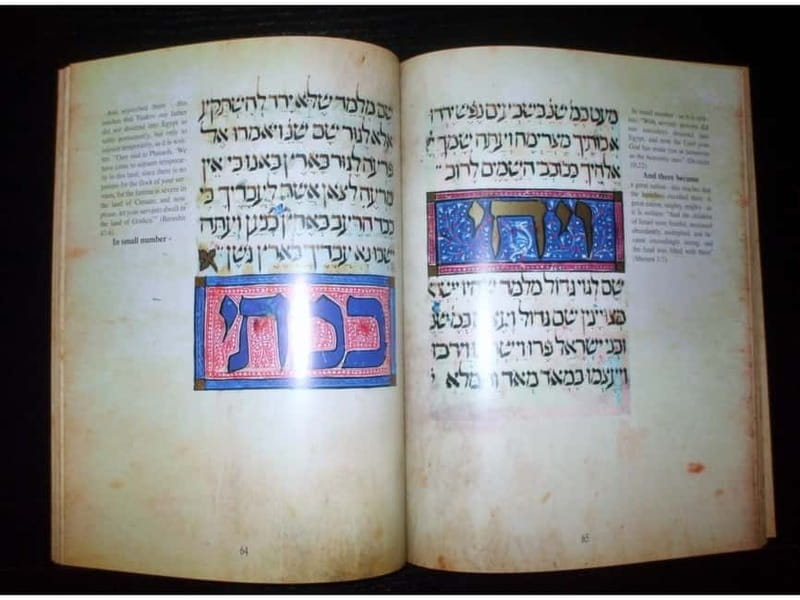 And sojourned there - this
teaches that Yaakov our father
did not descend into Egypt to
settle permanently, but only to
sojourn temporarily, as it is writ-
ten: "They said to Pharaoh, 'We
have come to sojourn temporar-
ily in this land, since there is no
pasture for the flock of your ser-
vants, for the famine is severe in
the land of Canaan; and now
please, let your servants dwell in
the land of Goshen.'" (Bereishit
47:4)
In small number -
שם מלמד שלא ירד להשתקע
אלא לגור שם שנ ויאמרו אל
פרעה לגור בארץ באנו כי אין
מרעה לצאן אשר לעבדיך כי
כבד הרעב בארץ כנען ועתה
ישבו נא עבדיך בארץ גשן
במתי
64
מעט כמ שנ בשבעים נפש ירדו
אבותיך מצרימה ועתה שמך
אלהיך ככוכבי השמים לרוב
ויהי
שם לגוי גדול מלמד שהיו
מצויינין שם גדול ועצום כמ שנ
ובני ישראל פרו וישרצו וירבו
ויעצמו במאד מאד ותמלא
In small number - as it is writ-
ten: "With seventy persons did
your ancestors descend to
Egypt, and now the Lord your
God has made you as numerous
as the heavenly stars" (Devarim
10:22)
And there became
a great nation - this teaches that
the Israelites excelled there. A
great nation, very mighty - as
it is written: "And the children
of Israel were fruitful, increased
abundantly, multiplied, and be-
came exceedingly strong, and
the land was filled with them"
(Shemot 1:7)
65